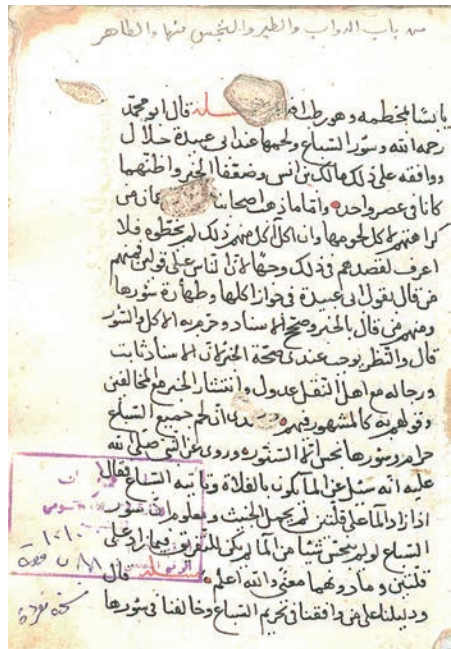 من باب الدواب والطير والنجس منها والطاهر
مسئلة قال ابو محمد
رحمه الله وسؤر السباع ولحمها عند ابي عبيدة حلال
ووافقه على ذلك مالك بن انس وضعفا الخبر واظنهما
كانا في عصر واحد واما ما ذهب اصحابنا من
كراهتهم لاكل لحومها وان اكل اكل منهم ذلك لم يخطوه فلا
اعرف لقصدهم في ذلك وجها لان الناس على قولين فمنهم
من قال بقول ابي عبيدة في جواز اكلها وطهارة سؤرها
ومنهم من قال بالخبر وصحح الاسناد وحرم به الاكل والسؤر
قال والنظر يوجب عندي صحة الخبر لان الاسناد ثابت
ورجاله مع اهل النقل عدول وانتشار الخبر مع المخالفين
وقولهم به كالمشهور فيهم وعندي ان لحم جميع السباع
حرام وسؤرها نجس الا السنور وروي عن النبي صلى الله
عليه انه سئل عن الما يكون بالفلاة وتاتيه السباع فقال
اذا زاد الما على قلتين لم يحمل الخبث ومعلوم ان سؤر
السباع لو لم ينجس شيئا من الما لم يكن للتفريق فيما زاد على
قلتين وما دونهما معنى والله اعلم مسئلة قال
ودليلنا على من وافقنا في تحريم السباع وخالفنا في سؤرها